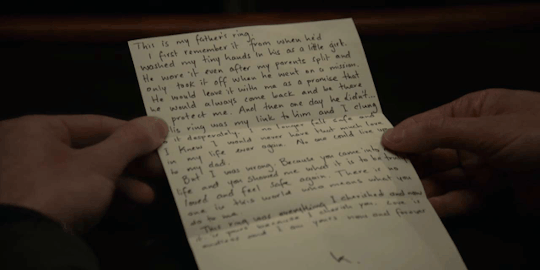 This is my father's ring.
I first remember it from when he'd
washed my tiny hands in his as a little girl.
He wore it even after my parents split and
only took it off when he went on a mission.
He would leave it with me as a promise that
he would always come back and be there
protect me. And then one day he didn't...
is ring was my link to him and I clung
it desperately. I no longer felt safe and
I knew I would never have that much love
in my life ever again. No one could live up
to my dad.
But I was wrong. Because you came into my
life and you showed me what it is to be
loved and feel safe again. There is no
one in this world who means what you
do to me.
This ring was everything I cherished and now
it is yours because I cherish you. Love is
endless and I am yours now and forever